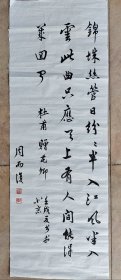 錦城絲管日紛〻半入江風半入
雲此曲只應天上有人間能得
幾回聞 杜甫贈花卿
北京
周而復